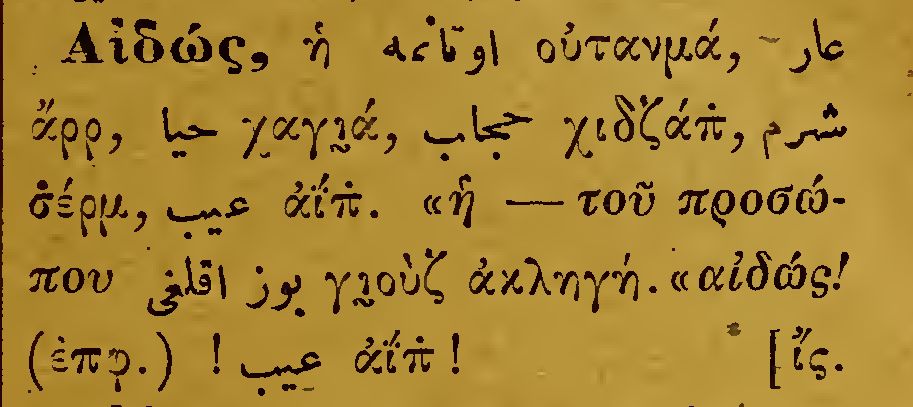 Αἰδώς, ἡ اوتانمه οὐτανμά, عار
ἄρρ, حيا χαγιά, حجاب χιδζάπ̇, شرم
σ̇έρμ, عيب ἀΐπ̇. «ἡ — τοῦ προσώ-
που يوز اقلغى γιοὺζ ἀκληγή. «αἰδώς!
(ἐπφ.) ! عيب ἀΐπ̇! [ἴς.